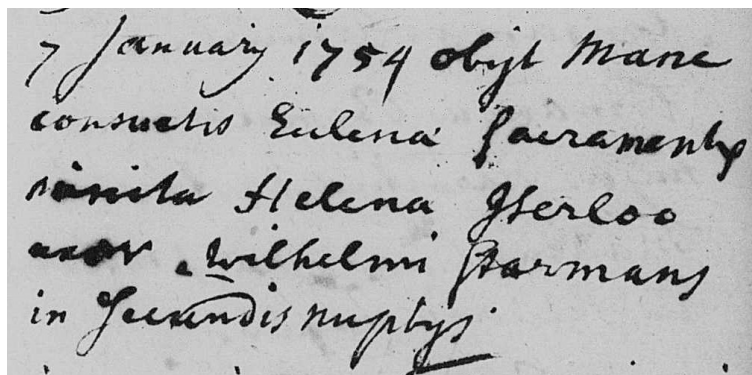 7 January 1754 obijt Mane
consuetis Eclena Sacramentis
munita Helena Iserloo
uxor Wilhelmi Starmans
in secundis nuptijs